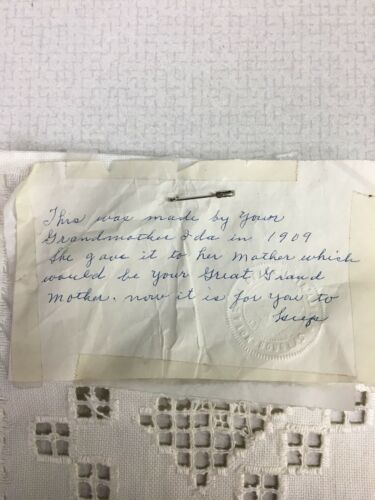 This was made by your
Grandmother Ida in 1909
She gave it to her Mother which
would be your Great Grand
Mother. now it is for you to
Keep